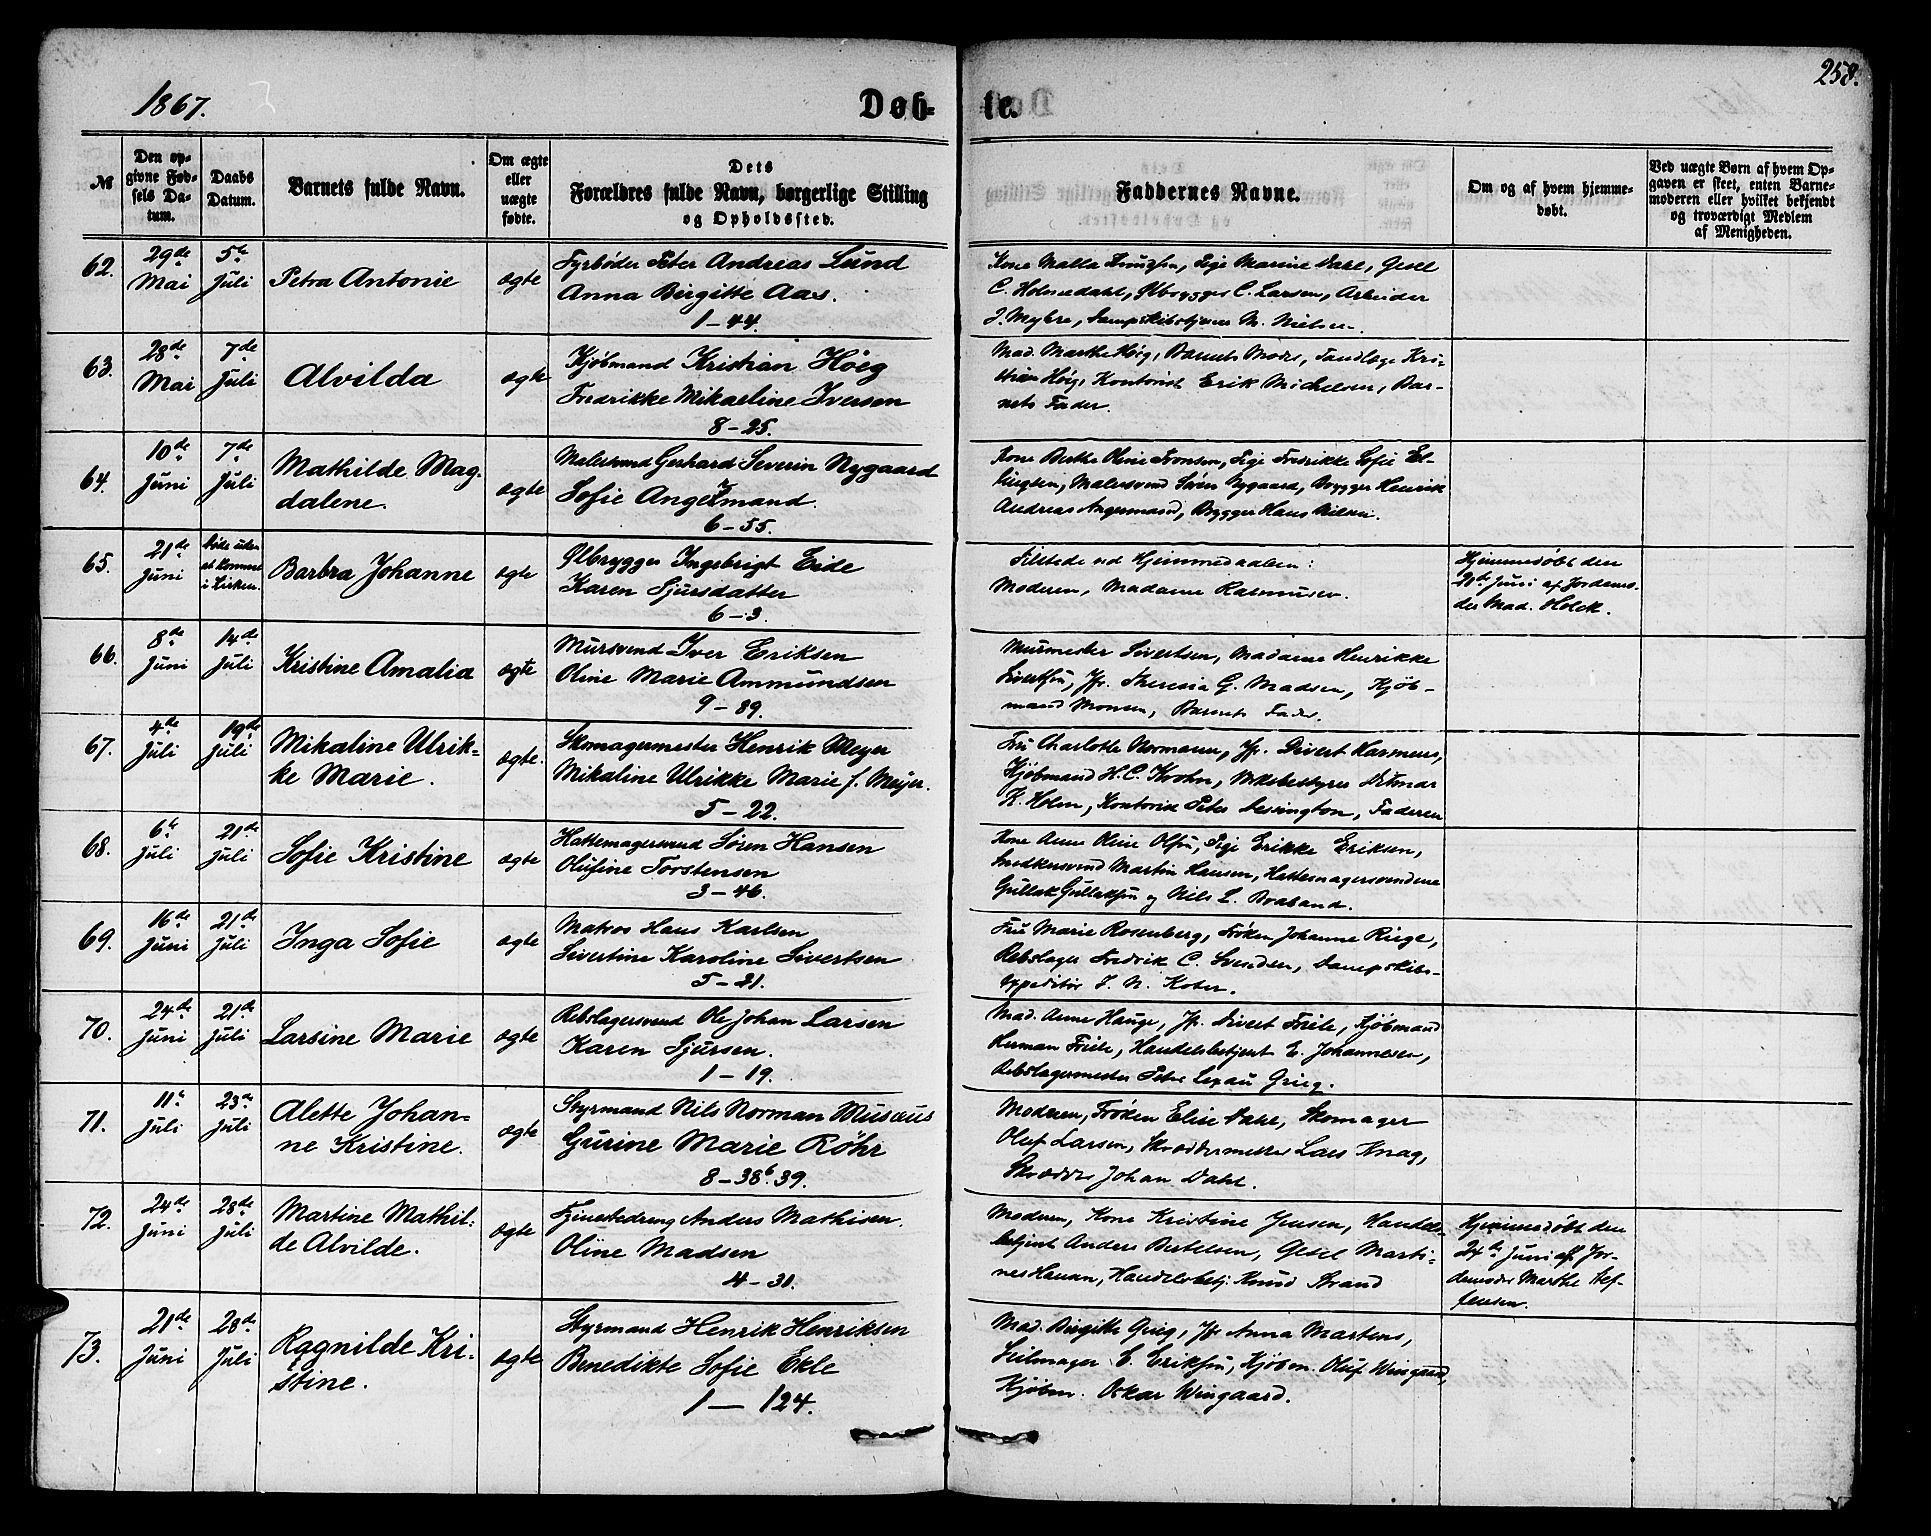 258.
1867.
Døb- te.
№
Den op-
givne Fød-
sels Da-
tum.
Daabs
Datum.
Barnets fulde Navn.
Om ægte
eller
uægte
fødte.
Dets
Forældres fulde Navn, borgerlige Stilling
og Opholdssted.
Faddernes Navne.
Om og af hvem hjemme-
døbt.
Ved uægte Børn af hvem Op-
gaven er skeet, enten Barne-
moderen eller hvilket bekjendt
og troværdigt Medlem
af Menigheden.
62.
29de
Mai
5te
Juli
Petra Antonie
ægte
Fyrbøder Peter Andreas Lund
Anna Birgitte Aas.
1-44.
Kone Malla Knudsen, Pige Marine Dahl, Gesel
C. Holmedahl, Ølbrygger C. Larsen, Arbeider
J. Myhre, Dampskibstjener M. Nielsen.
63.
28de
Mai
7de
Juli
Alvilda
ægte
Kjøbmand Kristian Höeg
Fredrikke Mikaeline Iversen
8-25.
Mad. Marthe Höig, Barnets Moder, Tandlæge Kri-
stian Höig, Kontorist Erik Michelsen, Bar-
nets Fader.
64.
10de
Juni
7de
Juli
Mathilde Mag-
dalene.
ægte
Malersvend Gerhard Severin Nygaard
Sofie Angermand.
6-55.
Kone Berthe Oline Svensen, Pige Fredrikke Sofie El-
lingsen, Malersvend Søren Nygaard, Brygger Henrik
Andreas Angermand, Brygger Hans Nilsen.
65.
21de
Juni
Døde uden
at komme
i Kirken.
Barbra Johanne
ægte
Ølbrygger Ingebrigt Eide
Karen Sjursdatter
6-3.
Tilstede ved Hjemmedaaben:
Moderen, Madame Rasmussen.
Hjemmedøbt den
21de Juni af Jordemo-
der Mad. Holck.
66.
8de
Juni
14de
Juli
Kristine Amalia
ægte
Mursvend Iver Eriksen
Oline Marie Ammundsen
9-89.
Murmester Sivertsen, Madame Henrikke
Sivertsen, Jfr. Theresia G. Madsen, Kjøb-
mand Monsen, Barnets Fader.
67.
4de
Juli
19de
Juli
Mikaline Ulrik-
ke Marie.
ægte.
Skomagermester Henrik Meyer
Mikaline Ulrikke Marie f. Meyer.
5-22.
Fru Charlotte Normann, Jfr. Divert Harmens,
Kjøbmand H. C. Krohn, Ditmar
K. Holm, Kontorist Peter Dessington, Faderen
68.
6te
Juli
21de
Juli
Sofie Kristine
ægte
Hattemagersvend Søren Hansen
Olufine Torstensen
3-46.
Kone Anne Oline Olsen, Pige Erikke Eriksen,
Snedkersvend Martin Hansen, Hattemagersvendene
Gullak Gullaksen og Nils L. Braband.
69.
16de
Juni
21de
Juli
Inga Sofie
ægte
Matros Hans Karlsen
Sivertine Karoline Sivertsen
5-21.
Fru Marie Rosenberg, Frøken Johanne Riege,
Rebslager Fredrik C. Svendsen, Dampskibs-
expeditør J. N. Koter.
70.
24de
Juni
21de
Juli
Larsine Marie
ægte
Rebslagersvend Ole Johan Larsen
Karen Sjursen.
1-19.
Mad. Anne Hauge, Jfr. Divert Friele, Kjøbmand
Herman Friele, Handelsbetjent E. Johannesen,
Rebslagermester Peter Lexau Grieg.
71.
11te
Juli
23de
Juli
Alette Johan-
ne Kristine.
ægte
Styrmand Nils Norman Musæus
Gurine Marie Röhr
8-38b.39.
Moderen, Frøken Elise Dahl, Skomager
Oluf Larsen, Skræddermester Lars Knag,
Skrædder Johan Dahl.
72.
24de
Juni
28de
Juli
Martine Mathil-
de Alvilde.
ægte
Tjenestedreng Anders Mathisen.
Oline Madsen
4-31.
Moderen, Kone Kristine Jensen, Handels-
betjent Anders Bertelsen, Gesel Marti-
nes Hansen, Handelsbetj. Knud Strand
Hjemmedøbt den
24de Juni af Jor-
demoder Marthe Stef-
fensen.
73.
21de
Juni
28de
Juli
Ragnilde Kri-
stine.
ægte
Styrmand Henrik Henriksen
Benedikte Sofie Ekle
1 - 124.
Mad. Birgitte Grieg, Jfr Anna Martens,
Seilmager E. Eriksen, Kjøbm. Oluf Wingaard,
Kjøbm. Oskar Wingaard.